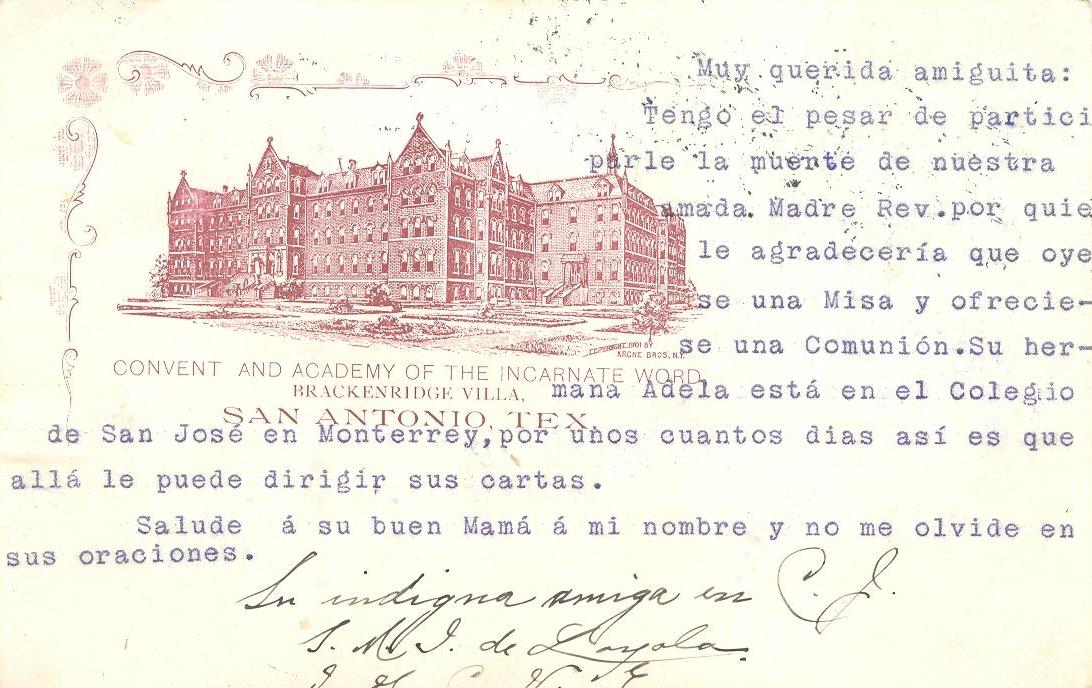 Muy querida amiguita:
Tengo el pesar de partici
parle la muente de nuestra
amada. Madre Rev.por quie
le agradecería que oye
se una Misa y ofrecie-
se una Comunión.Su her-
mana Adela está en el Colegio
de San José en Monterrey,por unos cuantos dias así es que
allá le puede dirigir sus cartas.
Salude á su buen Mamá á mi nombre y no me olvide en
sus oraciones.
COPYRIGHT 1901 BY
KRONE BROS. N.Y.
CONVENT AND ACADEMY OF THE INCARNATE WORD
BRACKENRIDGE VILLA,
SAN ANTONIO, TEX.
Su indigna amiga en C. J.
S. M. I. de Loyola.